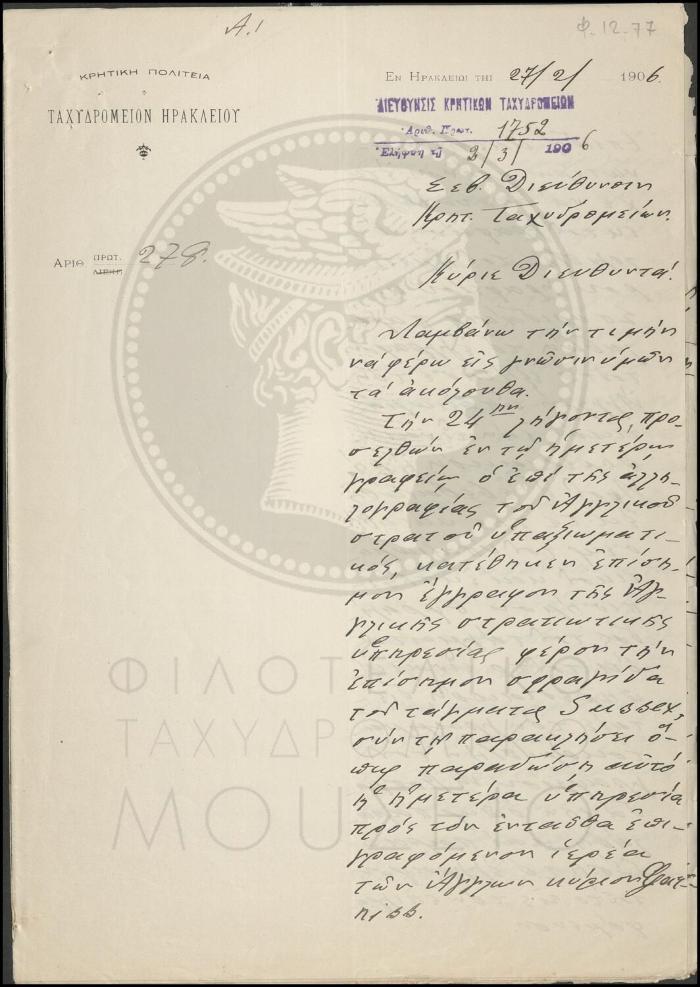 Α.1
Φ.12-77
ΚΡΗΤΙΚΗ ΠΟΛΙΤΕΙΑ
ΤΑΧΥΔΡΟΜΕΙΟΝ ΗΡΑΚΛΕΙΟΥ
ΑΡΙΘ ΠΡΩΤ. 278.
ΕΝ ΗΡΑΚΛΕΙΩ ΤΗΙ 27/2/ 1906.
ΔΙΕΥΘΥΝΣΙΣ ΚΡΗΤΙΚΩΝ ΤΑΧΥΔΡΟΜΕΙΩΝ
Ἀριθ. Πρωτ. 1752
Ἐλήφθη τῇ 2/3/ 1906
Σεβ. Διεύθυνσιν
Κρητ. Ταχυδρομείων.
Κύριε Διευθυντά.
Λαμβάνω τὴν τιμὴν
νὰ φέρω εἰς γνῶσιν ὑμῶν
τὰ ἀκόλουθα.
Τὴν 24ην λήγοντος, προ-
σελθὼν ἐν τῷ ἡμετέρῳ
γραφείῳ ὁ ἐπὶ τῆς ἀλλη-
λογραφίας τοῦ Ἀγγλικοῦ
στρατοῦ ὑπαξιωματι-
κός, κατέθηκεν ἐπίση-
μον ἔγγραφον τῆς Ἀγ-
γλικῆς στρατιωτικῆς
ὑπηρεσίας φέρον τὴν
ἐπίσημον σφραγίδα
τοῦ τάγματος Sussex,
σὺν τῇ παρακλήσει ὅ-
πως παραδώσῃ αὐτὸ
ἡ ἡμετέρα ὑπηρεσία
πρὸς τὸν ἐνταῦθα ἐπι-
γραφόμενον ἱερέα
τῶν Ἄγγλων κύριον
ΦΙΛΟΤΕΛΙΚΟ
ΤΑΧΥΔΡΟΜΙΚΟ
ΜΟΥΣΕΙΟ